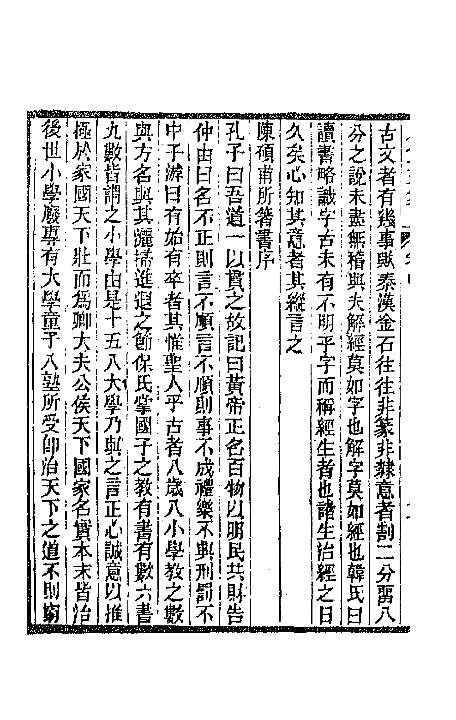 古文者有幾事歟秦漢金石往往非篆非隸意者割二分畱八
分之說未盡無稽與夫解經莫如字也解字莫如經也韓氏曰
讀書略識字古未有不明乎字而稱經生者也諸生治經之日
久矣心知其意者其縱言之
陳碩甫所著書序
孔子曰吾道一以貫之故記曰黃帝正名百物以明民共財告
仲由曰名不正則言不順言不順則事不成禮樂不興刑罰不
中子游曰有始有卒者其惟聖人乎古者八歲入小學教之數
與方名與其灑掃進退之節保氏掌國子之教有書有數六書
九數皆謂之小學由是十五入大學乃與之言正心誠意以推
極於家國天下壯而爲卿大夫公侯天下國家名實本末皆治
後世小學廢專有大學童子入塾所受卽治天下之道不則窮